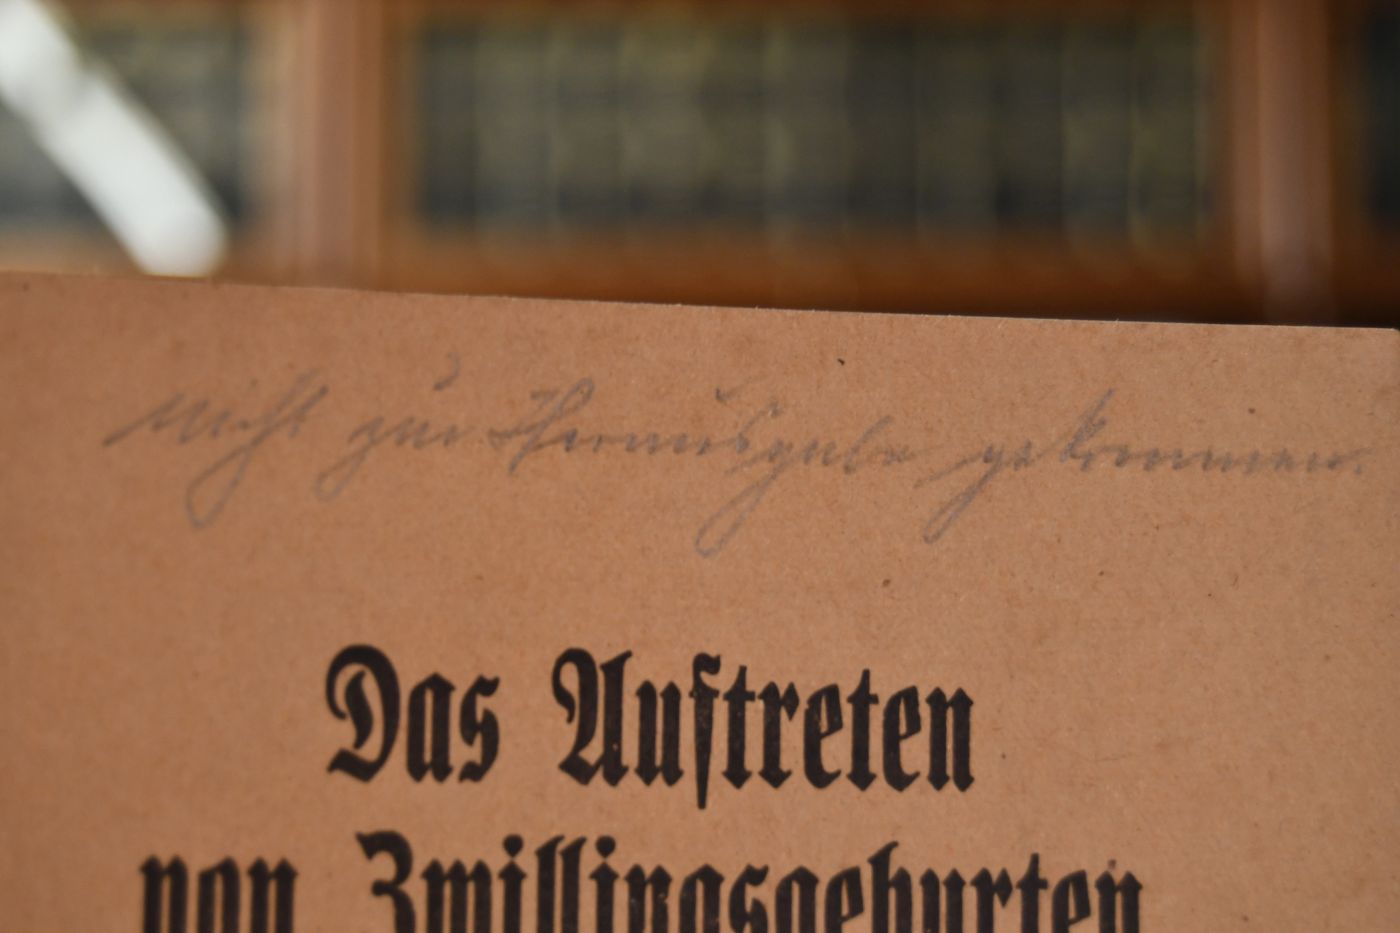 nicht zur Herausgabe gekommen.
Das Auftreten
von Zwillingsgeburten